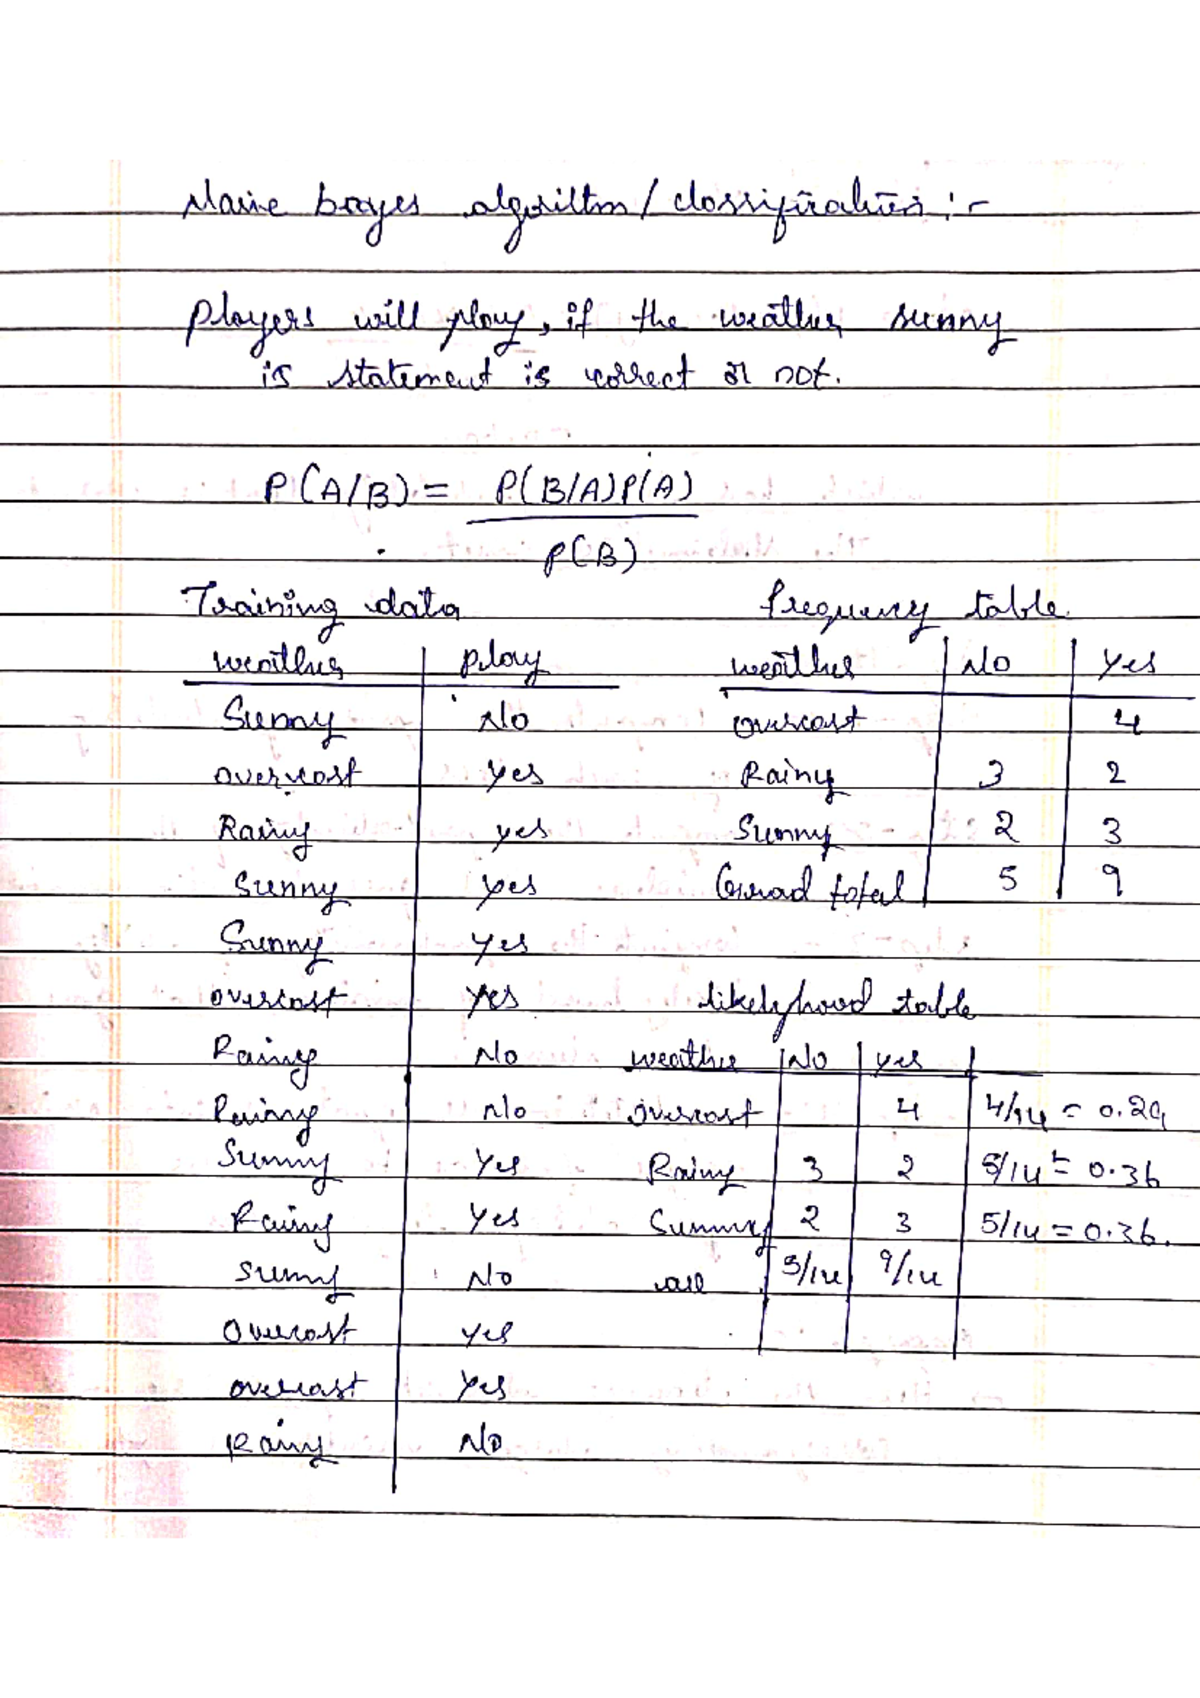 Naive bayes algorithm / classification :-
Players will play, if the weather sunny
is statement is correct or not.
P(A/B) = P(B/A)P(A)
P(B)
Training data frequency table
weather Play weather No Yes
Sunny No overcast 4
overcast yes Rainy 3 2
Rainy yes Sunny 2 3
Sunny yes Grand total 5 9
Sunny yes
overcast yes likelyhood table
Rainy No weather No yes
Rainy No overcast 4 4/14 = 0.29
Sunny Yes Rainy 3 2 5/14 = 0.36
Rainy Yes Sunny 2 3 5/14 = 0.36.
Sunny No all 5/14 9/14
Overcast yes
overcast Yes
Rainy No